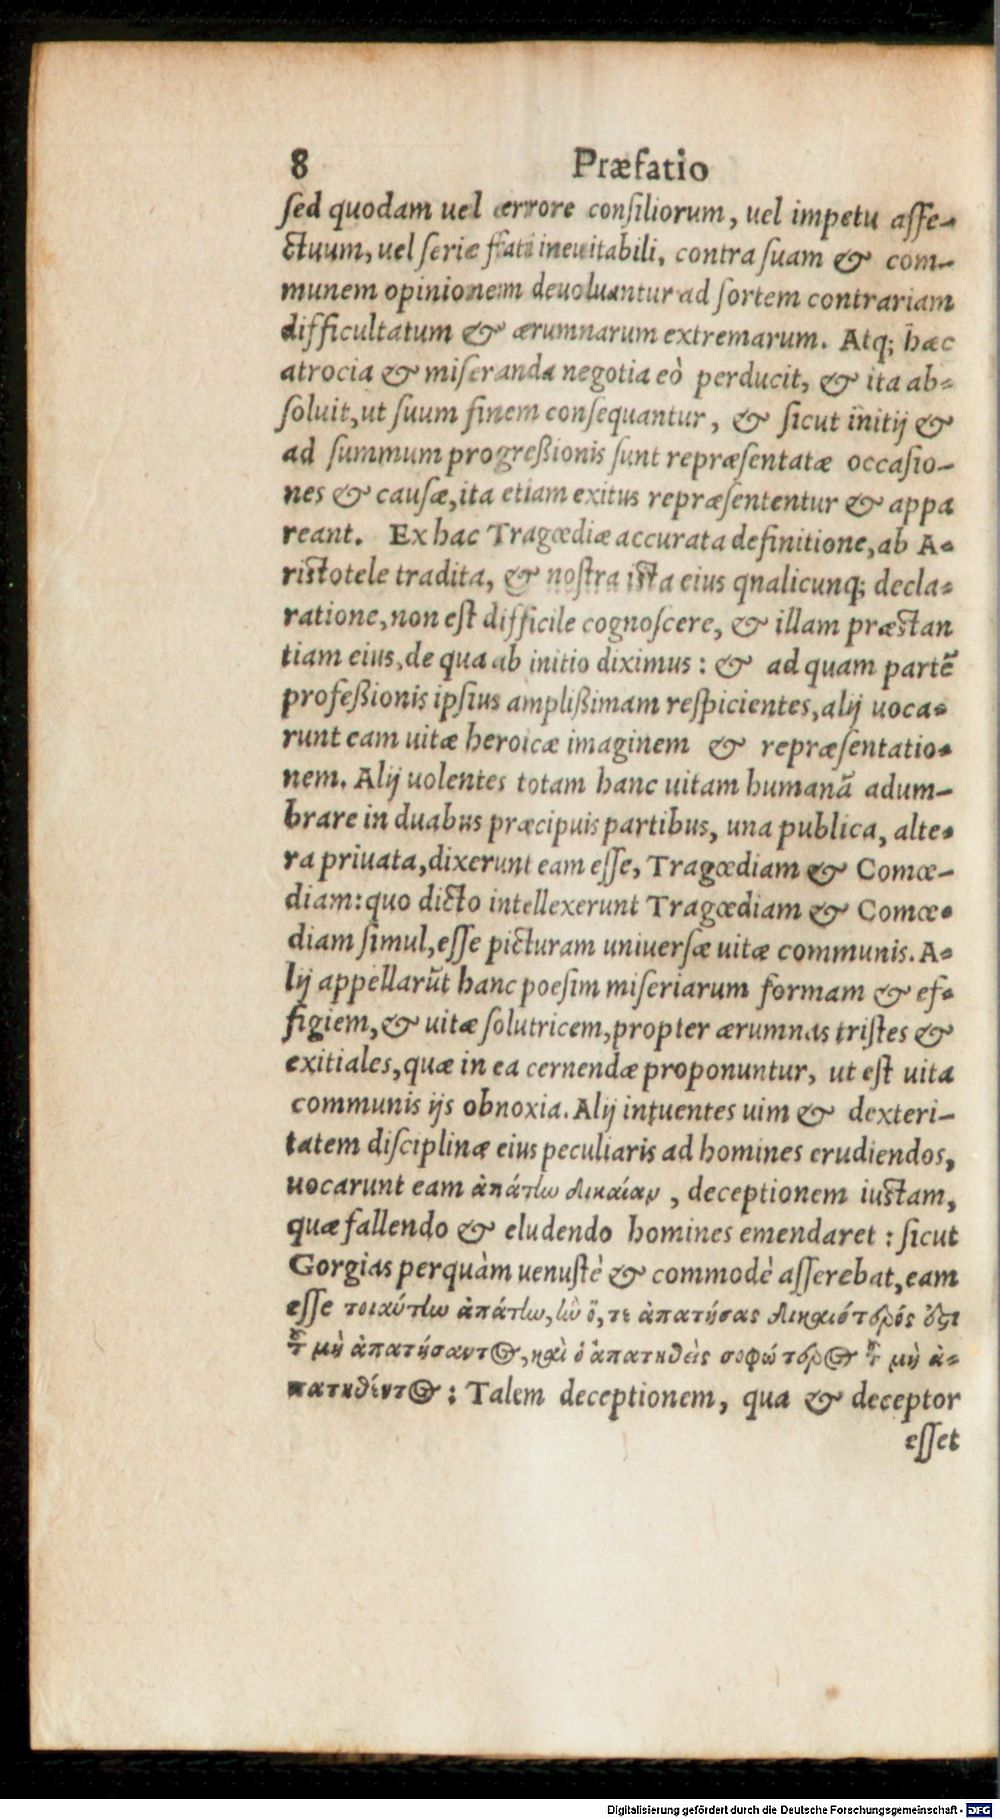 8 Præfatio
ſed quodam uel errore conſiliorum, uel impetu affe-
ctuum, uel ſerie fati ineuitabili, contra ſuam & com-
munem opinionem deuoluantur ad ſortem contrariam
difficultatum & ærumnarum extremarum. Atq; hæc
atrocia & miſeranda negotia eò perducit, & ita ab-
ſoluit, ut ſuum finem conſequantur, & ſicut initij &
ad ſummum progreßionis ſunt repræſentatæ occaſio-
nes & cauſæ, ita etiam exitus repræſententur & appa
reant. Ex hac Tragœdiæ accurata definitione, ab A-
riſtotele tradita, & noſtra iſta eius qnalicunq; decla-
ratione, non eſt difficile cognoſcere, & illam præſtan
tiam eius, de qua ab initio diximus: & ad quam partẽ
profeßionis ipſius amplißimam reſpicientes, alij uoca-
runt eam uitæ heroicæ imaginem & repræſentatio-
nem. Alij uolentes totam hanc uitam humanã adum-
brare in duabus præcipuis partibus, una publica, alte-
ra priuata, dixerunt eam eſſe, Tragœdiam & Comœ-
diam: quo dicto intellexerunt Tragœdiam & Comœ-
diam ſimul, eſſe picturam uniuerſæ uitæ communis. A-
lij appellarũt hanc poeſim miſeriarum formam & ef-
figiem, & uitæ ſolutricem, propter ærumnas triſtes &
exitiales, quæ in ea cernendæ proponuntur, ut eſt uita
communis ijs obnoxia. Alij intuentes uim & dexteri-
tatem diſciplinæ eius peculiaris ad homines erudiendos,
uocarunt eam ἀπάτην δικαίαν, deceptionem iuſtam,
quæ fallendo & eludendo homines emendaret: ſicut
Gorgias perquàm uenuſtè & commodè aſſerebat, eam
eſſe τοιαύτην ἀπάτην, ἣν ὅ, τε ἀπατήσας δικαιότερός ὅςι
τ͂ μὴ ἀπατήσαντος, καὶ ὁ ἀπατηθεὶς σοφώτερος τ͂ μὴ ἀ-
πατηθέντος: Talem deceptionem, qua & deceptor
eſſet
Digitalisierung gefördert durch die Deutsche Forschungsgemeinschaft - DFG